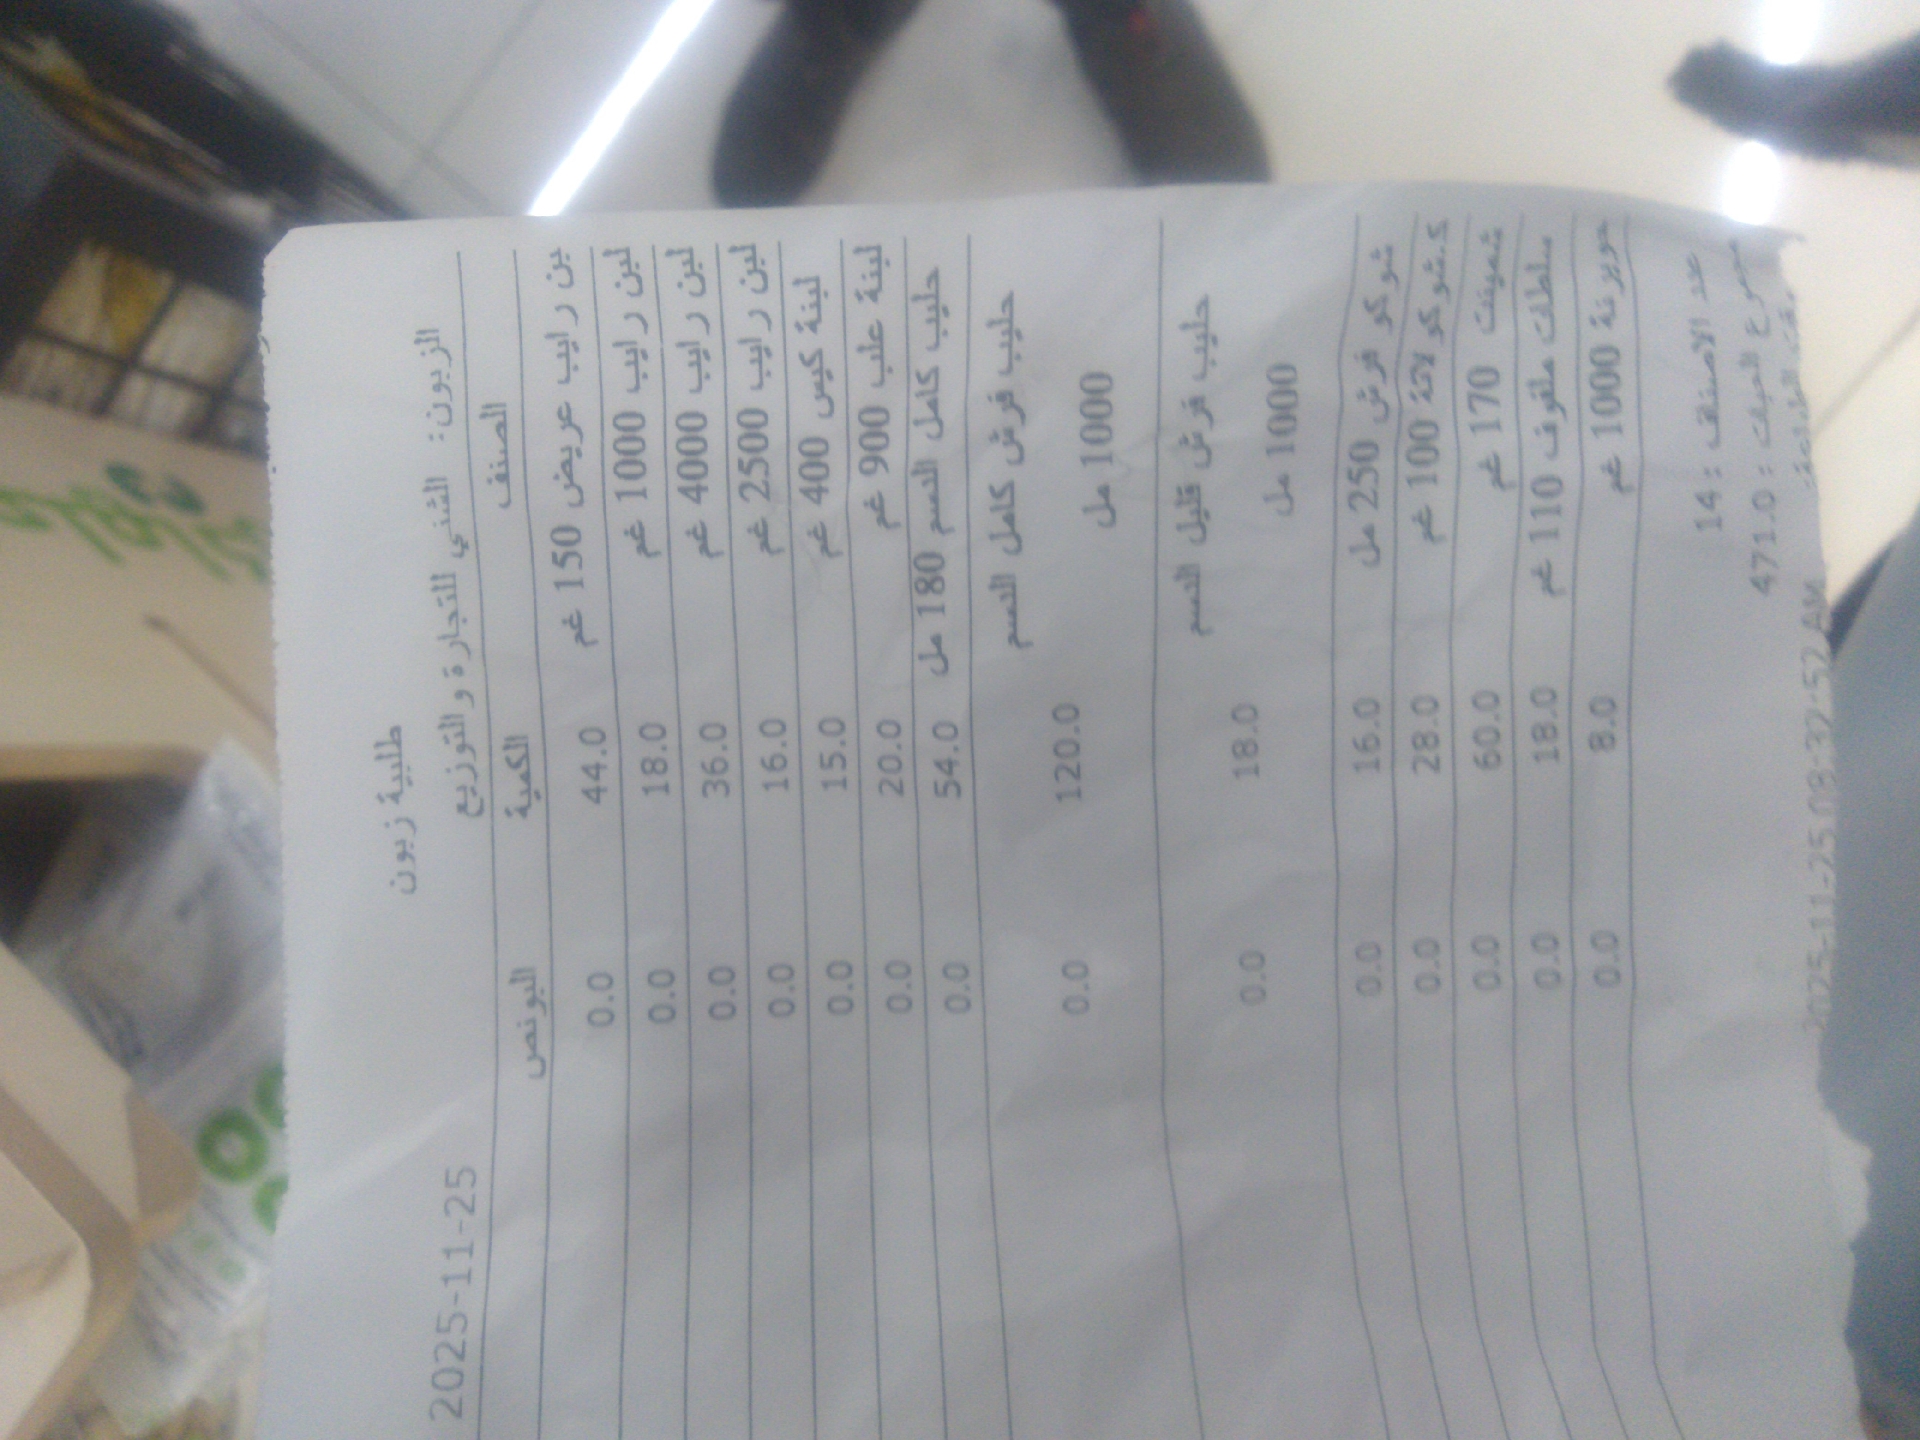 طلبية زبون
الزبون: الشني للتجارة و التوزيع 2025-11-25
الصنف الكمية البونص
بن رايب عريض 150 غم 44.0 0.0
لبن رايب 1000 غم 18.0 0.0
لبن رايب 4000 غم 36.0 0.0
لبن رايب 2500 غم 16.0 0.0
لبنة كيس 400 غم 15.0 0.0
لبنة علب 900 غم 20.0 0.0
حليب كامل الدسم 180 مل 54.0 0.0
حليب فرش كامل الدسم 120.0 0.0
1000 مل
حليب فرش قليل الدسم 18.0 0.0
1000 مل
شوكو فرش 250 مل 16.0 0.0
ك.شوكولاتة 100 غم 28.0 0.0
شمينت 170 غم 60.0 0.0
سلطات ملفوف 110 غم 18.0 0.0
1000 غم 8.0 0.0
عدد الاصناف : 14
مجموع الحبات : 471.0
2025-11-25 08:32:52 AM